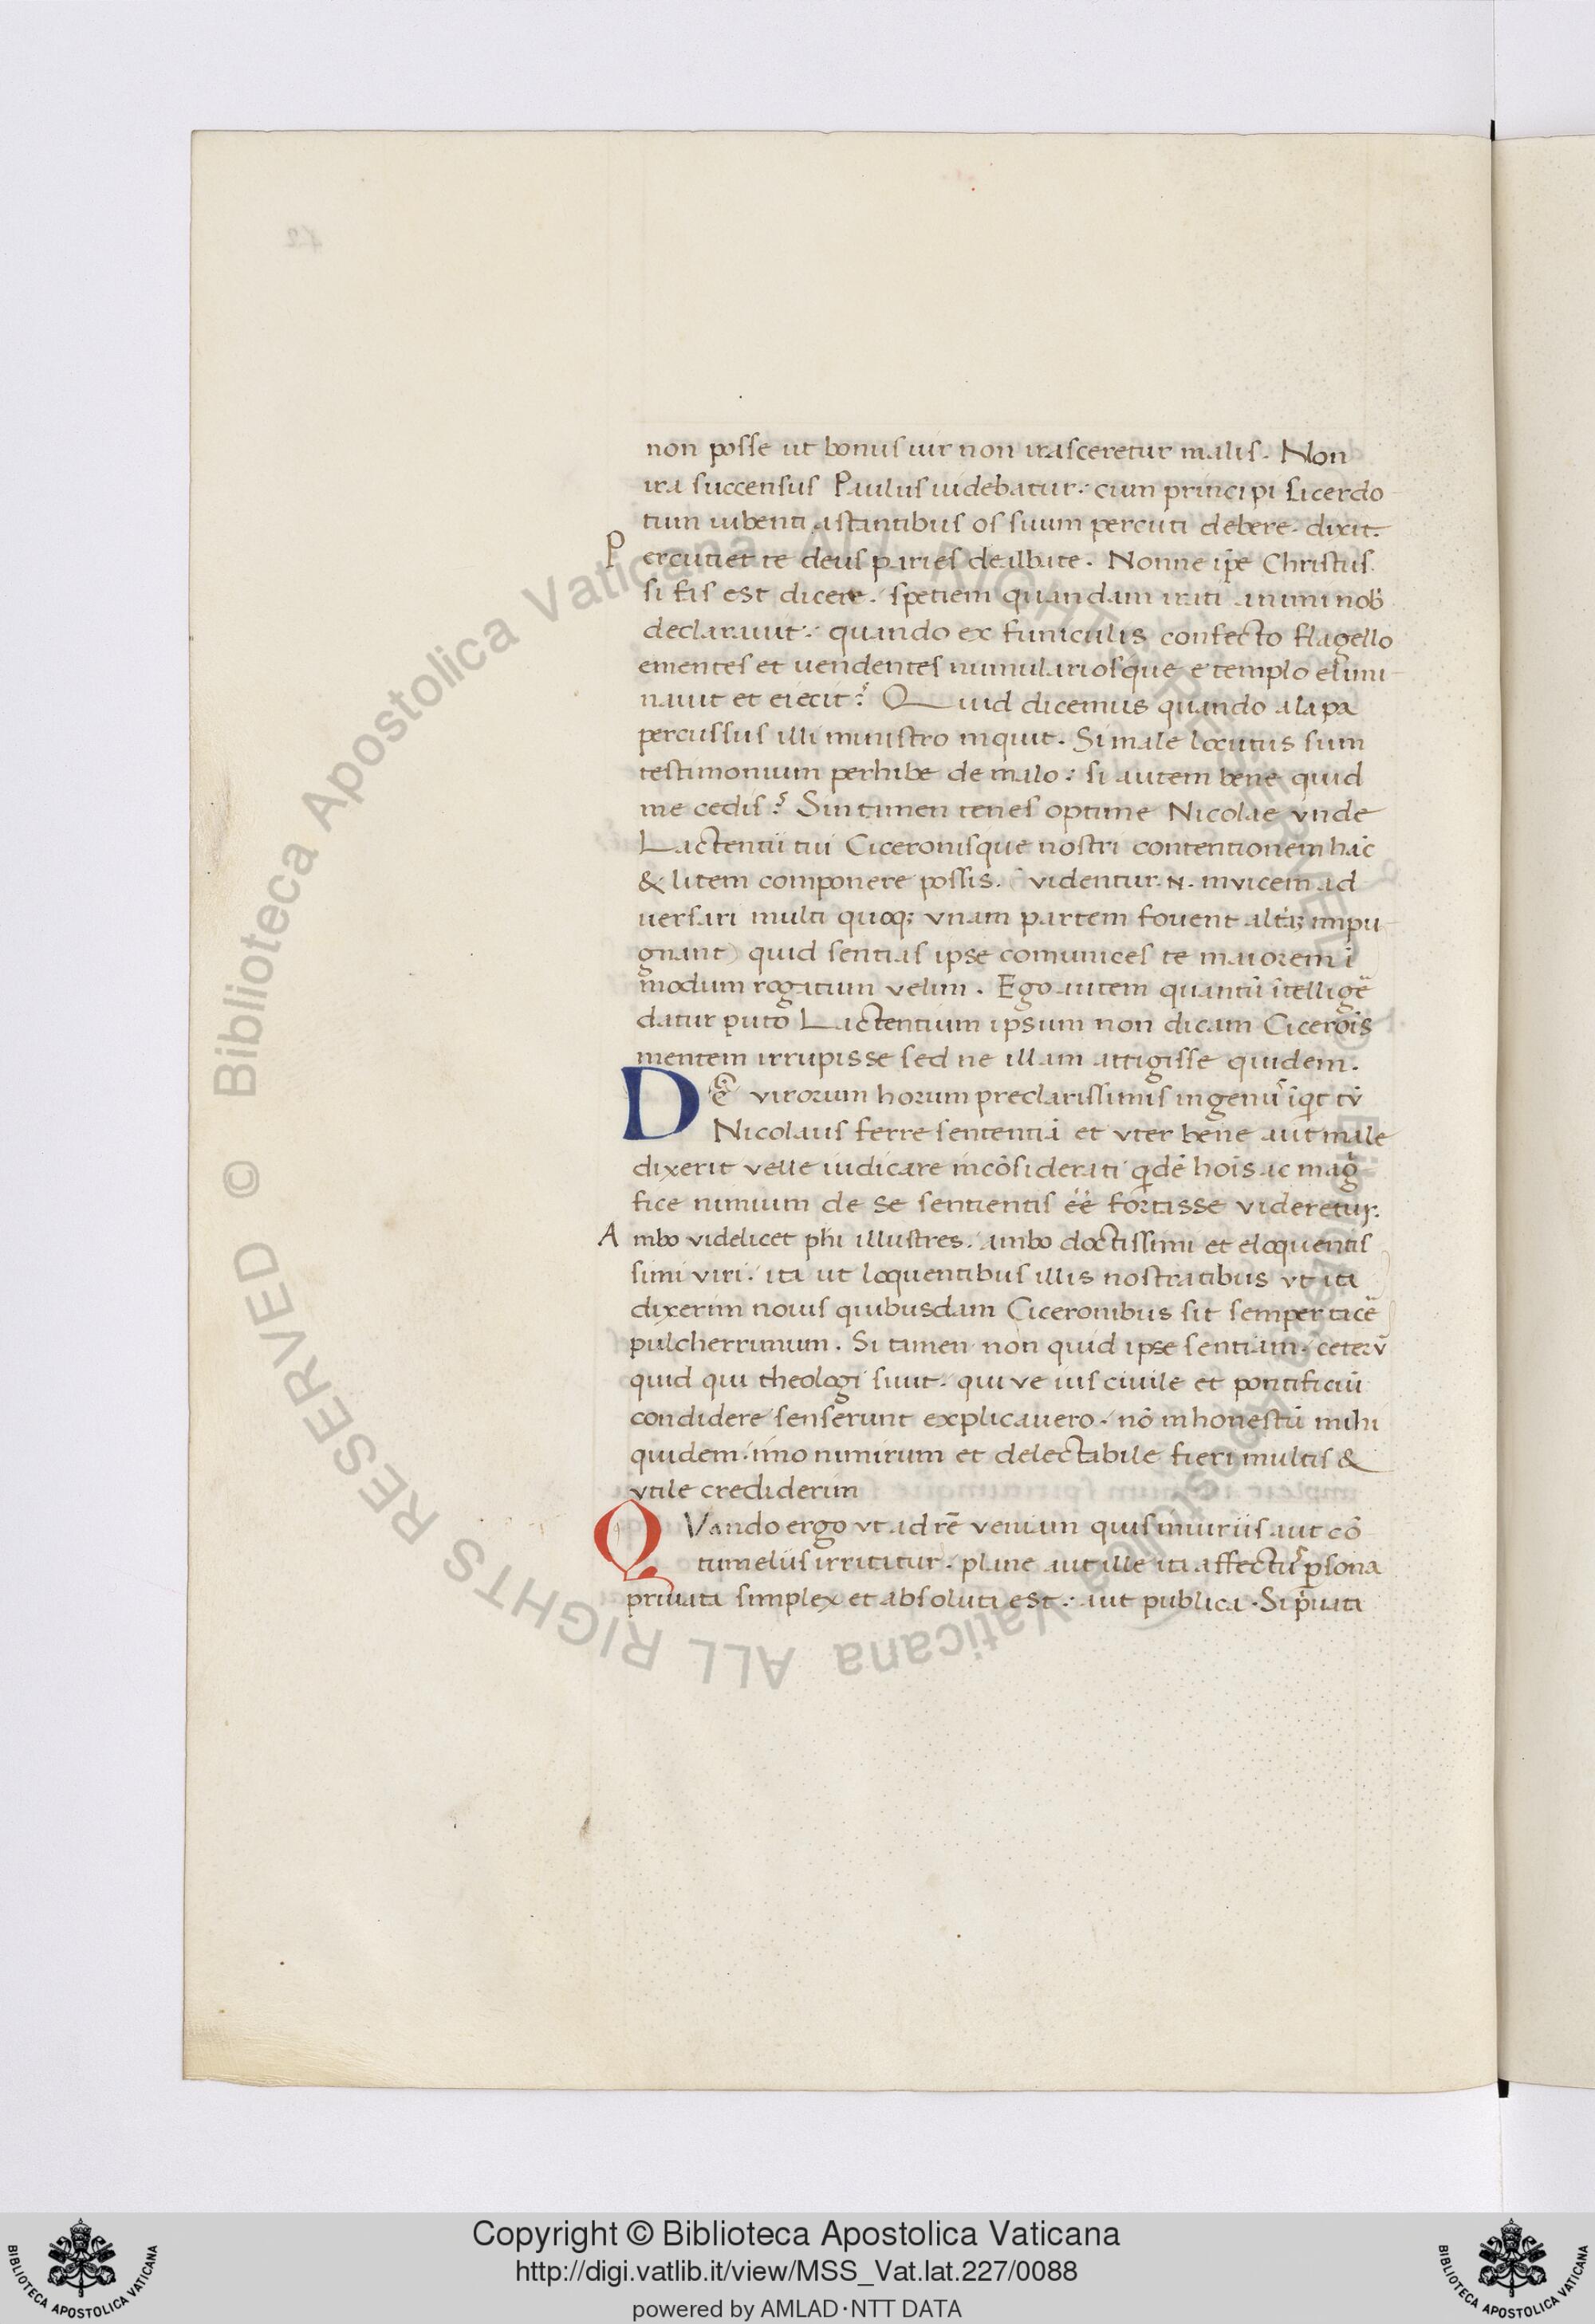 non posse ut bonus uir non irasceretur malis. Non
ira succensus Paulus uidebatur: cum principi sacerdo
tum iubenti astantibus os suum percuti debere. dixit.
Percutiet te deus paries dealbate. Nonne ip̄e Christus.
si fas est dicere. spetiem quandam irati animi nob̄
declarauit: quando ex funiculis confecto flagello
ementes et uendentes numulariosque e templo elimi
nauit et eiecit? Quid dicemus quando alapa
percussus illi ministro inquit. Si male locutus sum
testimonium perhibe de malo: si autem bene quid
me cedis? Sin tamen tenes optime Nicolae vnde
Lactentii tui Ciceronisque nostri contentionem hāc
& litem componere possis. videntur .N. invicem ad
uersari multi quoq; vnam partem fouent altā; impu
gnant) quid sentias ipse comunices te maiorem ī
modum rogatum velim. Ego autem quantū ītelligē
datur puto Lactentium ipsum non dicam Cicerōis
mentem irrupisse sed ne illam attigisse quidem.
DE virorum horum preclarissimis ingeniis īqt tū
Nicolaus ferre sententiā et vter bene aut male
dixerit velle iudicare incōsiderati qdē hoīs ac maḡ
fice nimium de se sentientis eē fortasse videretur.
Ambo videlicet phi illustres. ambo doctissimi et eloquentis
simi viri. ita ut loquentibus illis nostratibus vt ita
dixerim nouis quibusdam Ciceronibus sit semper tacē
pulcherrimum. Si tamen non quid ipse sentiam. ceterū
quid qui theologi sunt. qui ve ius ciuile et pontificiū
condidere senserunt explicauero. nō inhonestū mihi
quidem. imo nimirum et delectabile fieri multis &
vtile crediderim
QVando ergo vt ad rē veniam quis iniuriis aut cō
tumeliis irritatur. plane aut ille ita affectus psona
priuata simplex et absoluta est: aut publica. Si p̄uata
Copyright © Biblioteca Apostolica Vaticana
http://digi.vatlib.it/view/MSS_Vat.lat.227/0088
powered by AMLAD·NTT DATA
BIBLIOTECA APOSTOLICA VATICANA
BIBLIOTECA APOSTOLICA VATICANA
© Biblioteca Apostolica Vaticana ALL RIGHTS RESERVED © Biblioteca Apostolica Vaticana ALL RIGHTS RESERVED